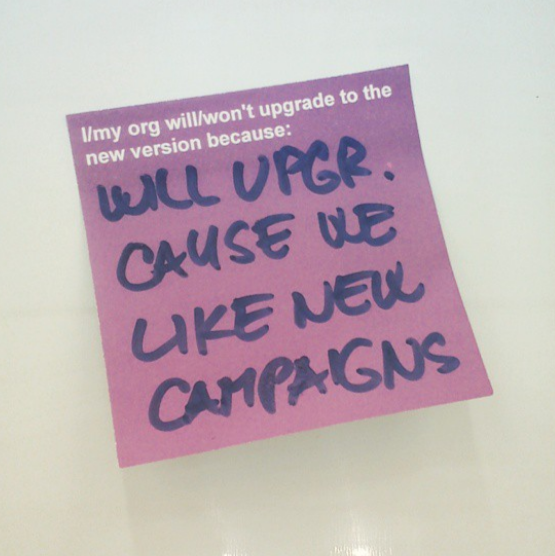 I/my org will/won't upgrade to the
new version because:
WILL UPGR.
CAUSE WE
LIKE NEW
CAMPAIGNS